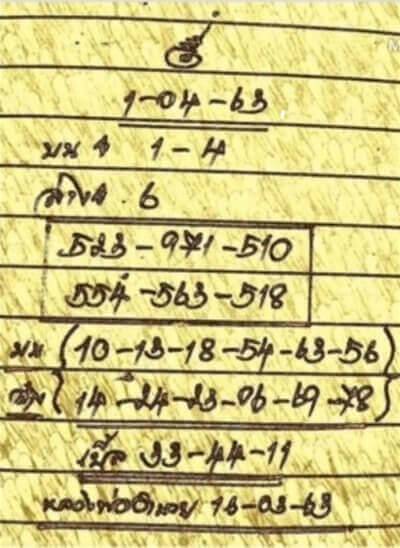 1-04-63
บน 1-4
ล่าง 6
523-971-510
554-563-518
บน (10-13-18-54-63-56)
ล่าง {14-24-23-06-69-78}
เบิ้ล 33-44-11
หลวงพ่อ 16-03-63